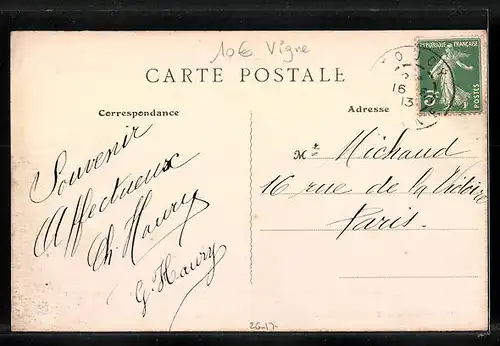 10€ Vigne
CARTE POSTALE
REPUBLIQUE FRANÇAISE
5c
POSTES
16
13
Correspondance
Adresse
Souvenir
Affectueux
Ch. Haury
G. Haury
Mr Michaud
16 rue de la Victoire
Paris.
26-17